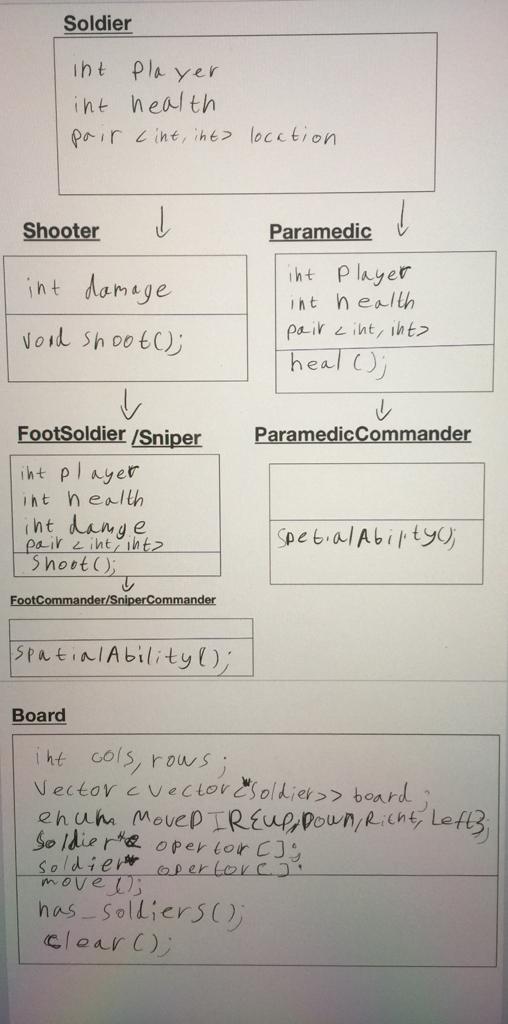 Soldier
int player
int health
pair <int, int> location
Shooter
int damage
void shoot();
Paramedic
int Player
int health
pair <int, int>
heal ();
FootSoldier /Sniper
int player
int health
int damge
pair <int, int>
shoot();
ParamedicCommander
SpetialAbility();
FootCommander/SniperCommander
SpatialAbility();
Board
int cols, rows;
Vector <vector <*Soldier>> board;
enum MoveDIR{up, Down, Richt, Left};
Soldier*& opertor[];
soldier* opertor[];
move();
has_soldiers();
clear();